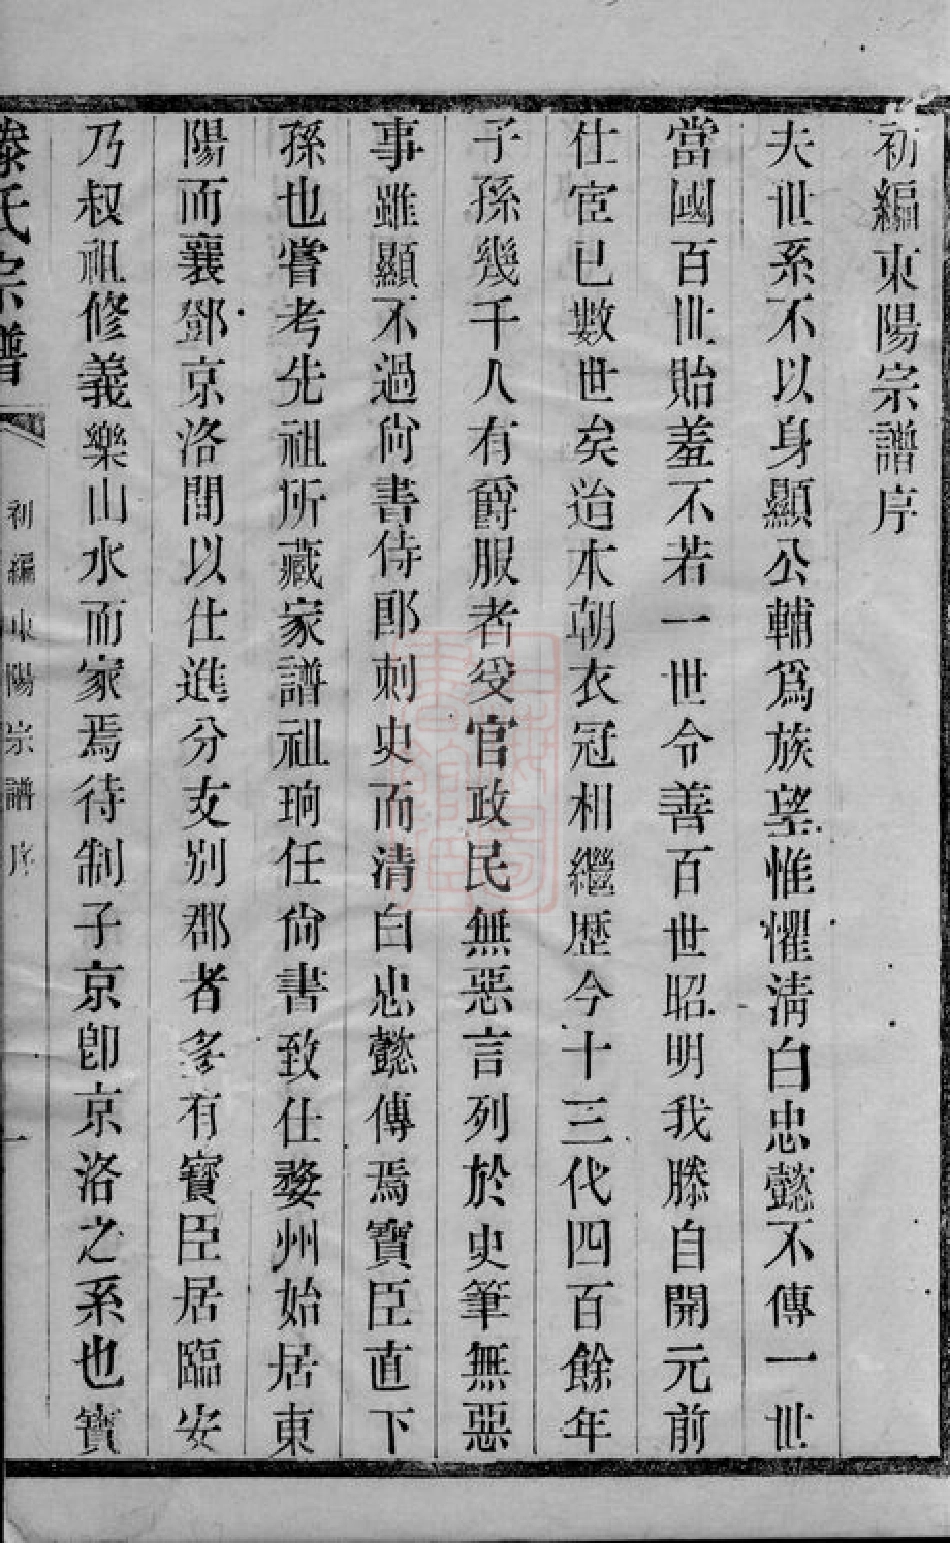 初編東陽宗譜序
夫世系不以身顯公輔爲族望惟懼淸白忠懿不傳一世
當國百世貽羞不若一世令善百世昭明我滕自開元前
仕宦已數世矣迨本朝衣冠相繼歷今十三代四百餘年
子孫幾千人有爵服者受官政民無惡言列於史筆無惡
事雖顯不過尙書侍郎刺史而清白忠懿傳焉寶臣直下
孫也嘗考先祖所藏家譜祖珦任尙書致仕婺州始居東
陽而襄鄧京洛間以仕進分支別郡者多有寶臣居臨安
乃叔祖修義樂山水而家焉待制子京卽京洛之系也寶
滕氏宗譜
初編東陽宗譜序
一